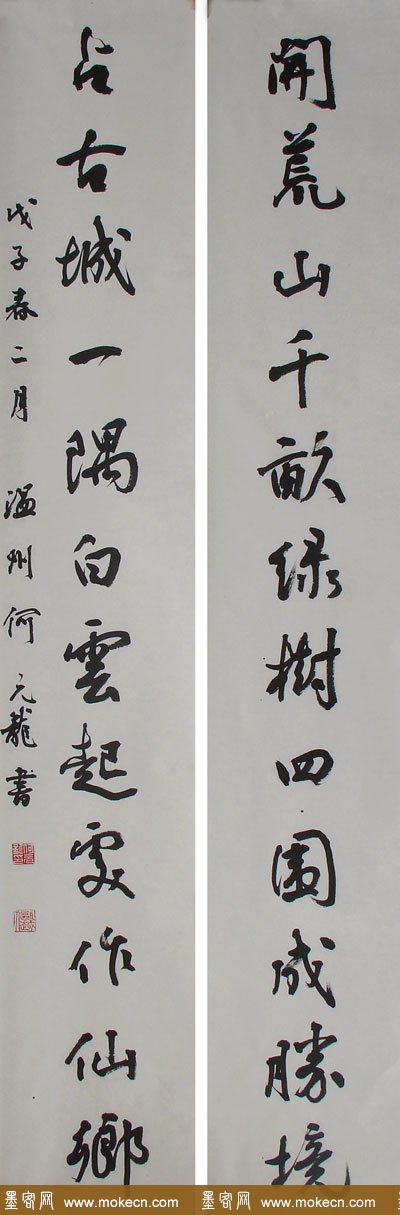 開荒山千畝绿樹四圍成勝境
占古城一隅白雲起處作仙鄉
戊子春二月 温州何元龍書
墨客网 www.mokecn.com 墨客网 www.mokecn.com 墨客